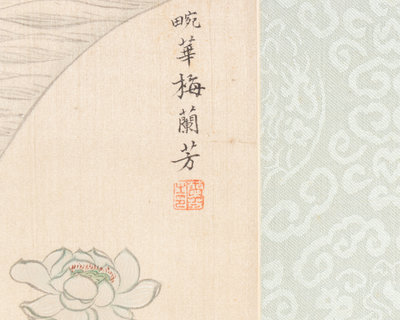 畹華梅蘭芳